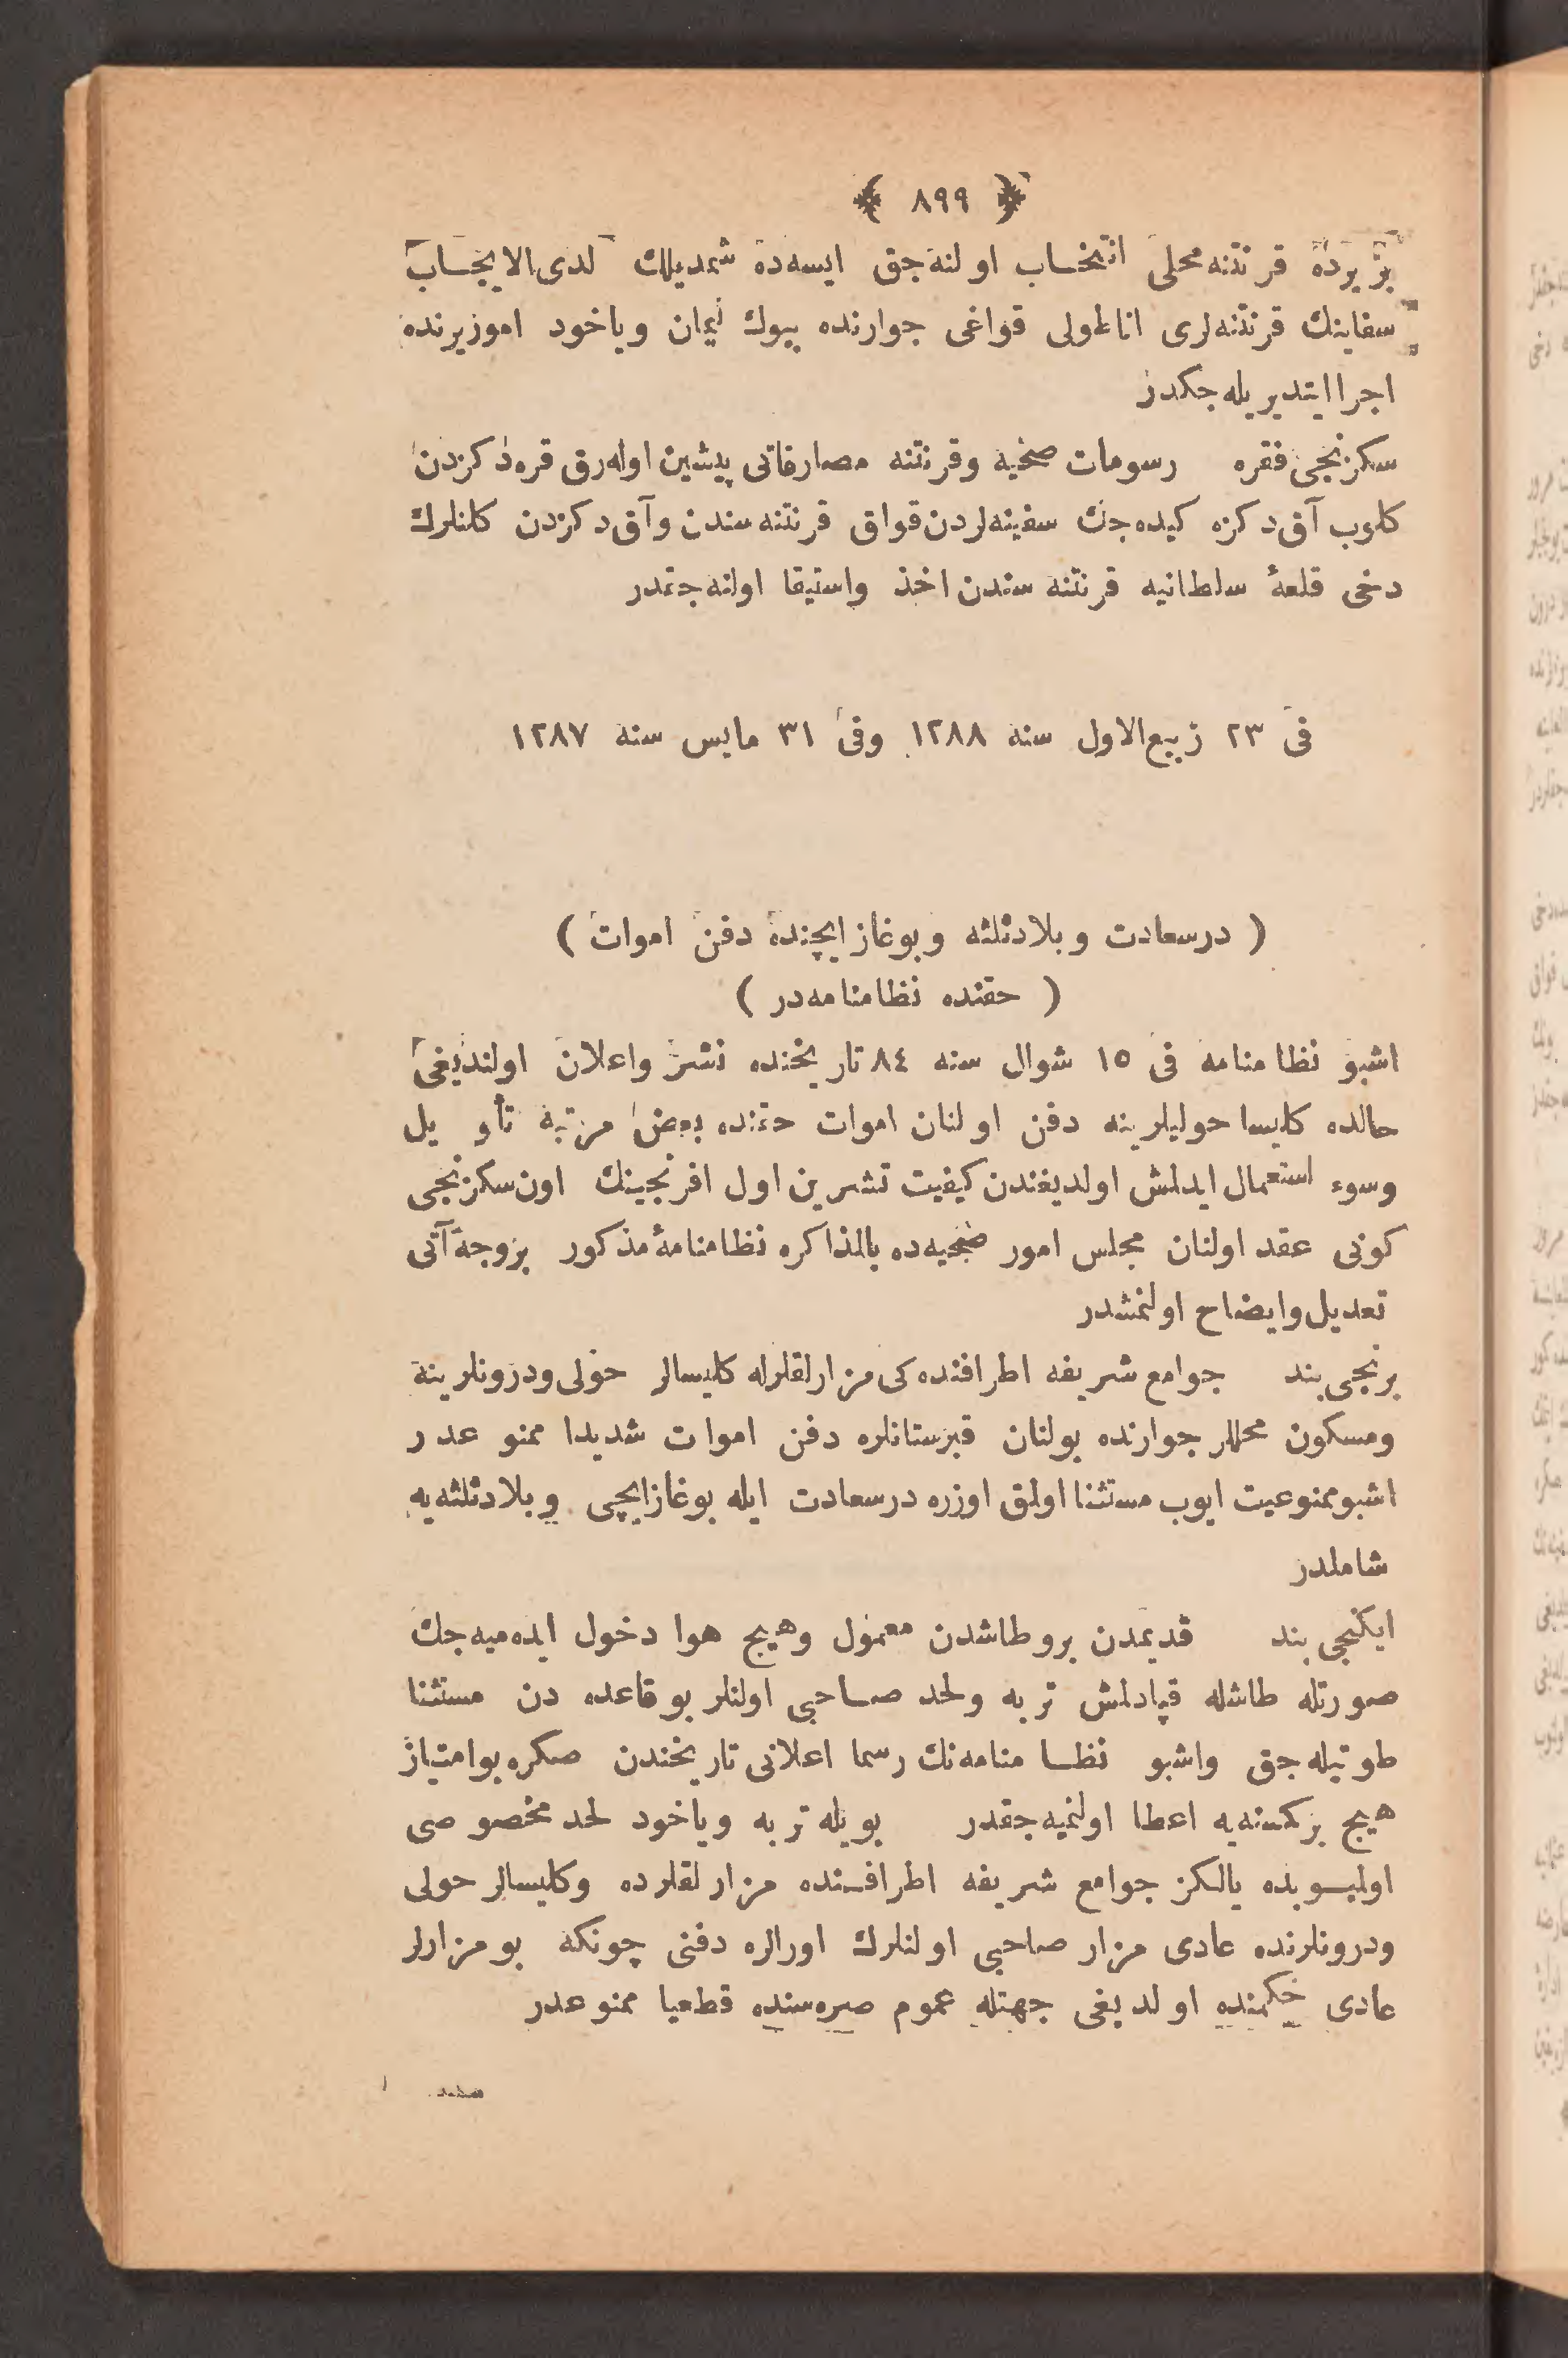 ﴿ ٨٩٩ ﴾
بر یرده قرنتنه محلی انتخاب اولنه‌جق ایسه‌ده شمدیلك لدی‌الایجاب
سفاینك قرنتنه‌لری اناطولی قواغی جوارنده بیوك لیمان ویاخود اموزیرنده
اجرا ایتدیریله‌جكدر
سكزنجی فقره رسومات صحیه وقرنتنه مصارفاتی پیشین اوله‌رق قره‌دكزدن
كلوب آق‌دكزه كیده‌جك سفینه‌لردن قواق قرنتنه‌سندن وآق‌دكزدن كلنلرك
دخی قلعهٔ سلطانیه قرنتنه سندن اخذ واستیفا اولنه‌جقدر
فی ٢٣ ربیع‌الاول سنه ١٢٨٨ وفی ٣١ مایس سنه ١٢٨٧
( درسعادت و بلادثلثه و بوغاز ایچنده دفن اموات )
( حقنده نظامنامه‌در )
اشبو نظامنامه فی ١٥ شوال سنه ٨٤ تاریخنده نشر واعلان اولندیغی
حالده كلیسا حولیلرینه دفن اولنان اموات حقنده بعض مرتبه تأویل
وسوء استعمال ایدلمش اولدیغندن كیفیت تشرین اول افرنجینك اون سكزنجی
كونی عقد اولنان مجلس امور صحیه‌ده بالمذاكره نظامنامهٔ مذكور بروجه آتی
تعدیل وایضاح اولنمشدر
برنجی بند جوامع شریفه اطرافنده‌كی مزارلقلرله كلیسالر حولی ودرونلرینه
ومسكون محللر جوارنده بولنان قبرستانلره دفن اموات شدیدا ممنوعدر
اشبو ممنوعیت ایوب مستثنا اولمق اوزره درسعادت ایله بوغازایچی و بلادثلثه‌یه
شاملدر
ایكنجی بند قدیمدن برو طاشدن معمول وهیچ هوا دخول ایده‌میه‌جك
صورتله طاشله قپادلمش تربه ولحد صاحبی اولنلر بو قاعده دن مستثنا
طوتیله‌جق واشبو نظامنامه‌نك رسما اعلانی تاریخندن صكره بو امتیاز
هیچ بركمسنه‌یه اعطا اولنمیه‌جقدر بویله تربه ویاخود لحد مخصوصی
اولمیوبده یالكز جوامع شریفه اطرافنده مزارلقلرده وكلیسالر حولی
ودرونلرنده عادی مزار صاحبی اولنلرك اورالره دفنی چونكه بو مزارلر
عادی حكمنده اولدیغی جهتله عموم صره‌سنده قطعیا ممنوعدر